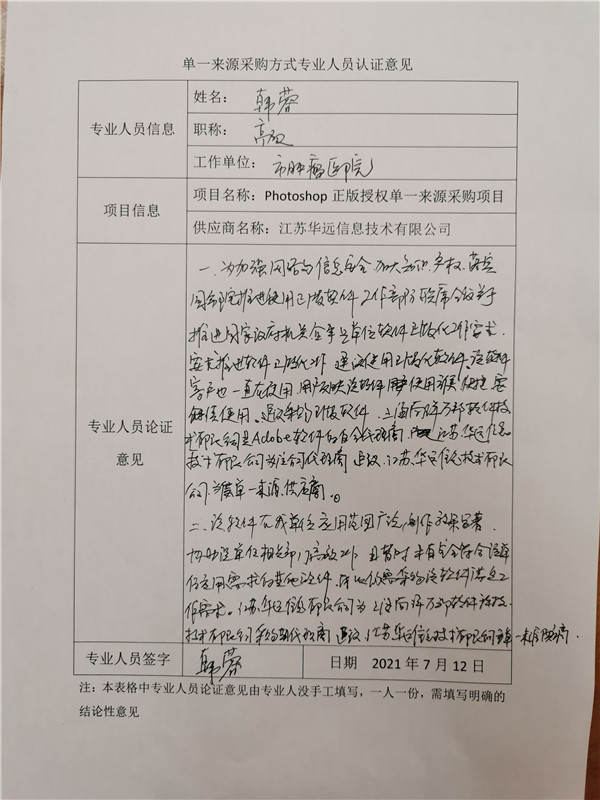 单一来源采购方式专业人员认证意见
专业人员信息
姓名： 韩蓉
职称： 高工
工作单位： 市肿瘤医院
项目信息
项目名称：Photoshop 正版授权单一来源采购项目
供应商名称：江苏华远信息技术有限公司
专业人员论证
意见
一、为加强网络与信息安全、加大知识产权、落实
国务院推进使用正版软件工作部际联席会议关于
推进国家政府机关企事业单位软件正版化工作要求、
要求推进软件正版化工作 建议使用正版化软件、该软件
客户也一直在使用、用户反映该软件使用
继续使用、建议采购正版软件、上海
技术有限公司是Adobe软件的 代理商、江苏华远信息
技术有限公司为 公司代理商 建议、江苏华远信息技术有限
公司 为单一来源供应商。
二、该软件在我单位应用范围广泛、制作效果显著
协助该单位 工作 且暂时未有完全符合该单
位应用需求的其他软件、 仍需采购该软件满足工
作需求。江苏华远信息有限公司为上海 软件科技
技术有限公司 代理商 建议 江苏华远信息技术有限公司 单一来源供应商.
专业人员签字 韩蓉 日期 2021 年 7 月 12 日
注：本表格中专业人员论证意见由专业人没手工填写，一人一份，需填写明确的
结论性意见